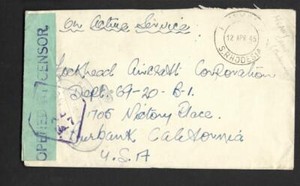 On Active Service
12 APR 45
S. RHODESIA
OPENED BY CENSOR
Lockheed Aircraft Corporation
Dept. 69-20-B.1.
1705 Victory Place.
Burbank California
U.S.A